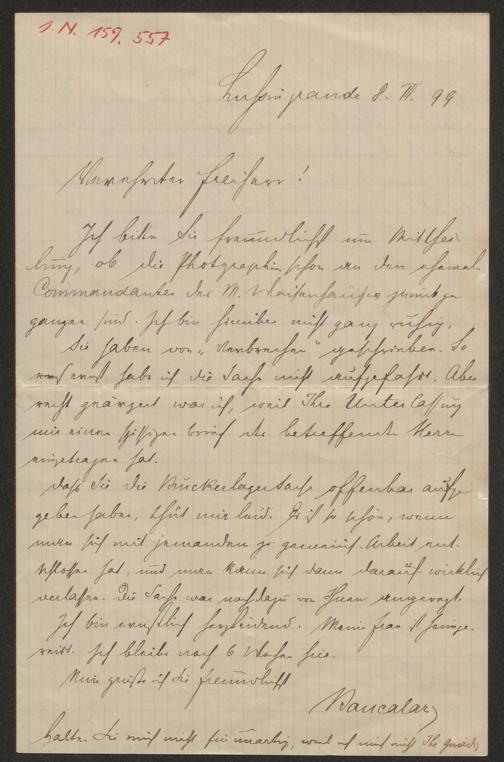 I. N. 159.557
Lussingrande 8. III. 99
Verehrter Freiherr!
Ich bitte Sie freundlichst um Mitthei-
lung, ob die Photographien schon an den ehemal.
Commandanten des M. Waisenhauses zurückge-
gangen sind. Ich bin hierüber nicht ganz ruhig.
Sie haben von „Verbrechen" geschrieben. So
ernst habe ich die Sache nicht aufgefasst. Aber
recht geärgert war ich, weil Ihre Unterlassung
mir einen spitzigen Brief des betreffenden Herrn
eingetragen hat.
Dass Sie die Bruckerlagersache offenbar aufge-
geben haben, thut mir leid. Es ist so schön, wenn
man sich mit jemanden zu gemeins. Arbeit ent-
schlossen hat, und man kann sich dann darauf wirklich
verlassen. Die Sache war noch dazu von Ihnen angeregt.
Ich bin ernstlich herzleidend. Meine Frau ist heimge-
reist. Ich bleibe noch 6 Wochen hier.
Nun grüße ich Sie freundlichst
Bancalari
Halten Sie mich nicht für unartig, weil ich mich nicht Ihr